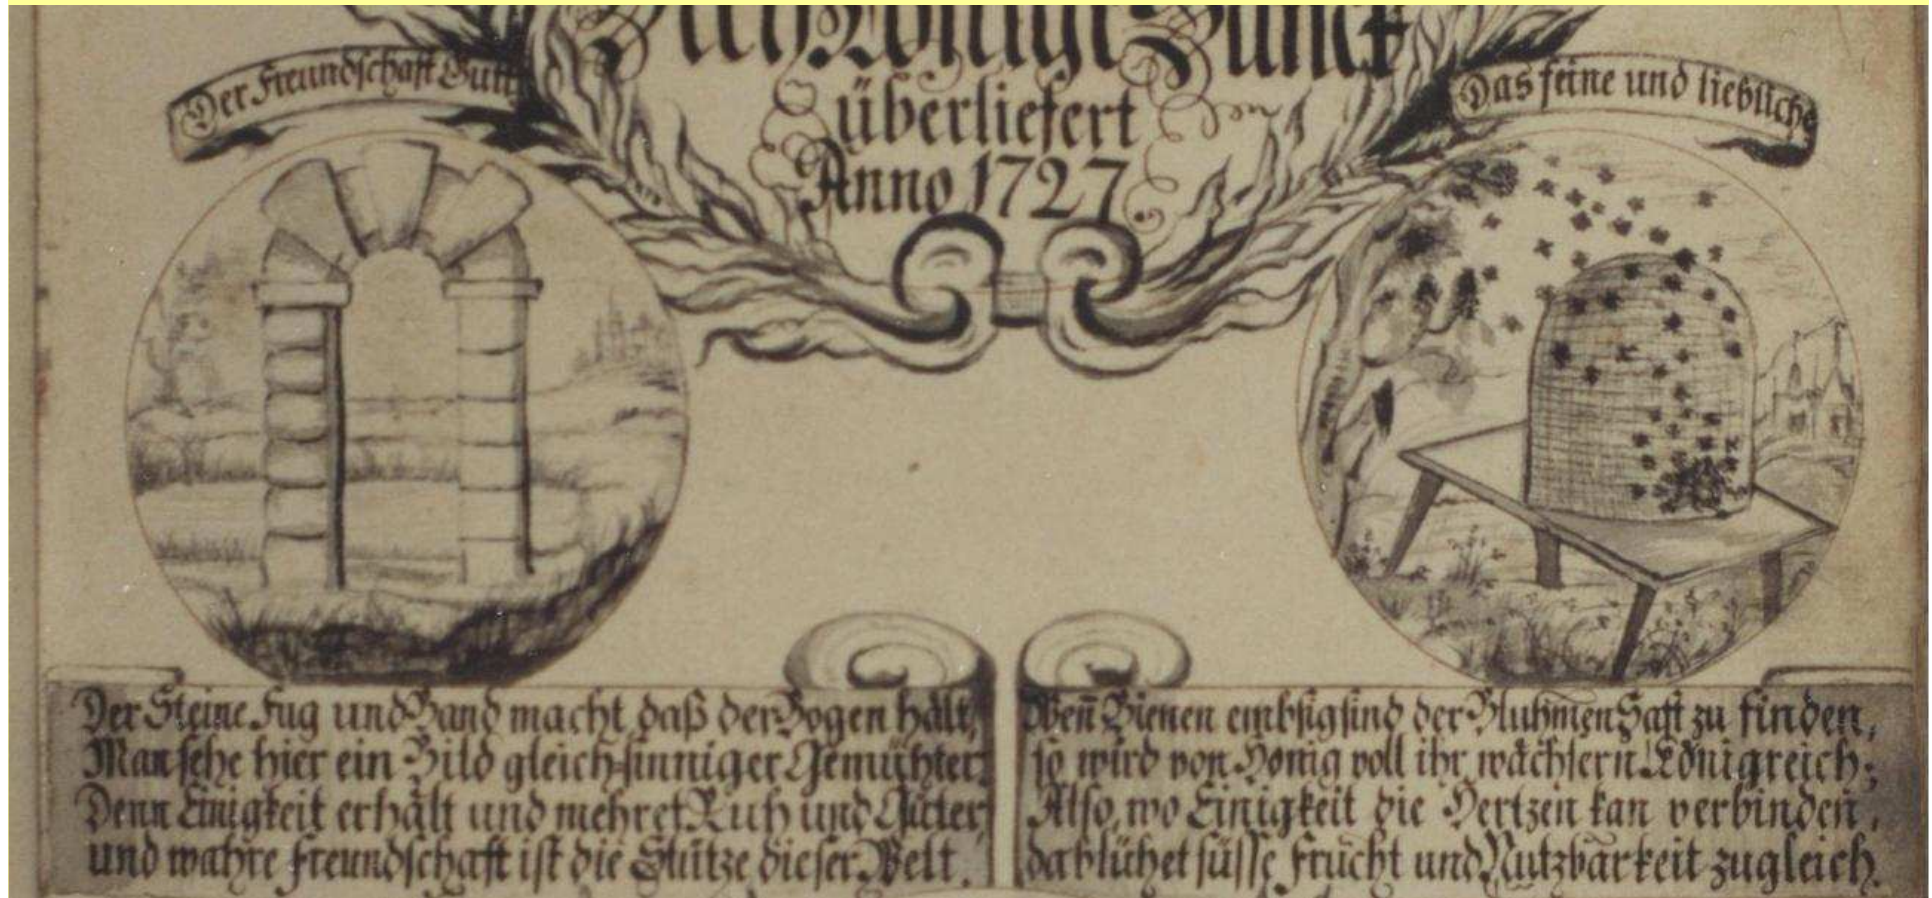 überliefert
Anno 1727.
Der Freundschaft Gutt
Das feine und liebliche
Der Steine Fug und Band macht, daß der Bogen hält,
Man sehe hier ein Bild gleich-sinniger Gemühter:
Denn Einigkeit erhält und mehret Ruh und Güter,
und wahre Freundschaft ist die Stütze dieser Welt.
Wen̄ Bienen embsig sind der Bluhmen Safft zu finden,
so wird von Honig voll ihr wächsern Königreich;
Also, wo Einigkeit die Hertzen kan verbinden,
da blühet süsse Frucht und Nutzbarkeit zugleich.